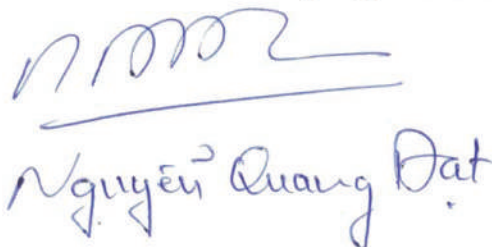 Nguyễn Quang Đạt